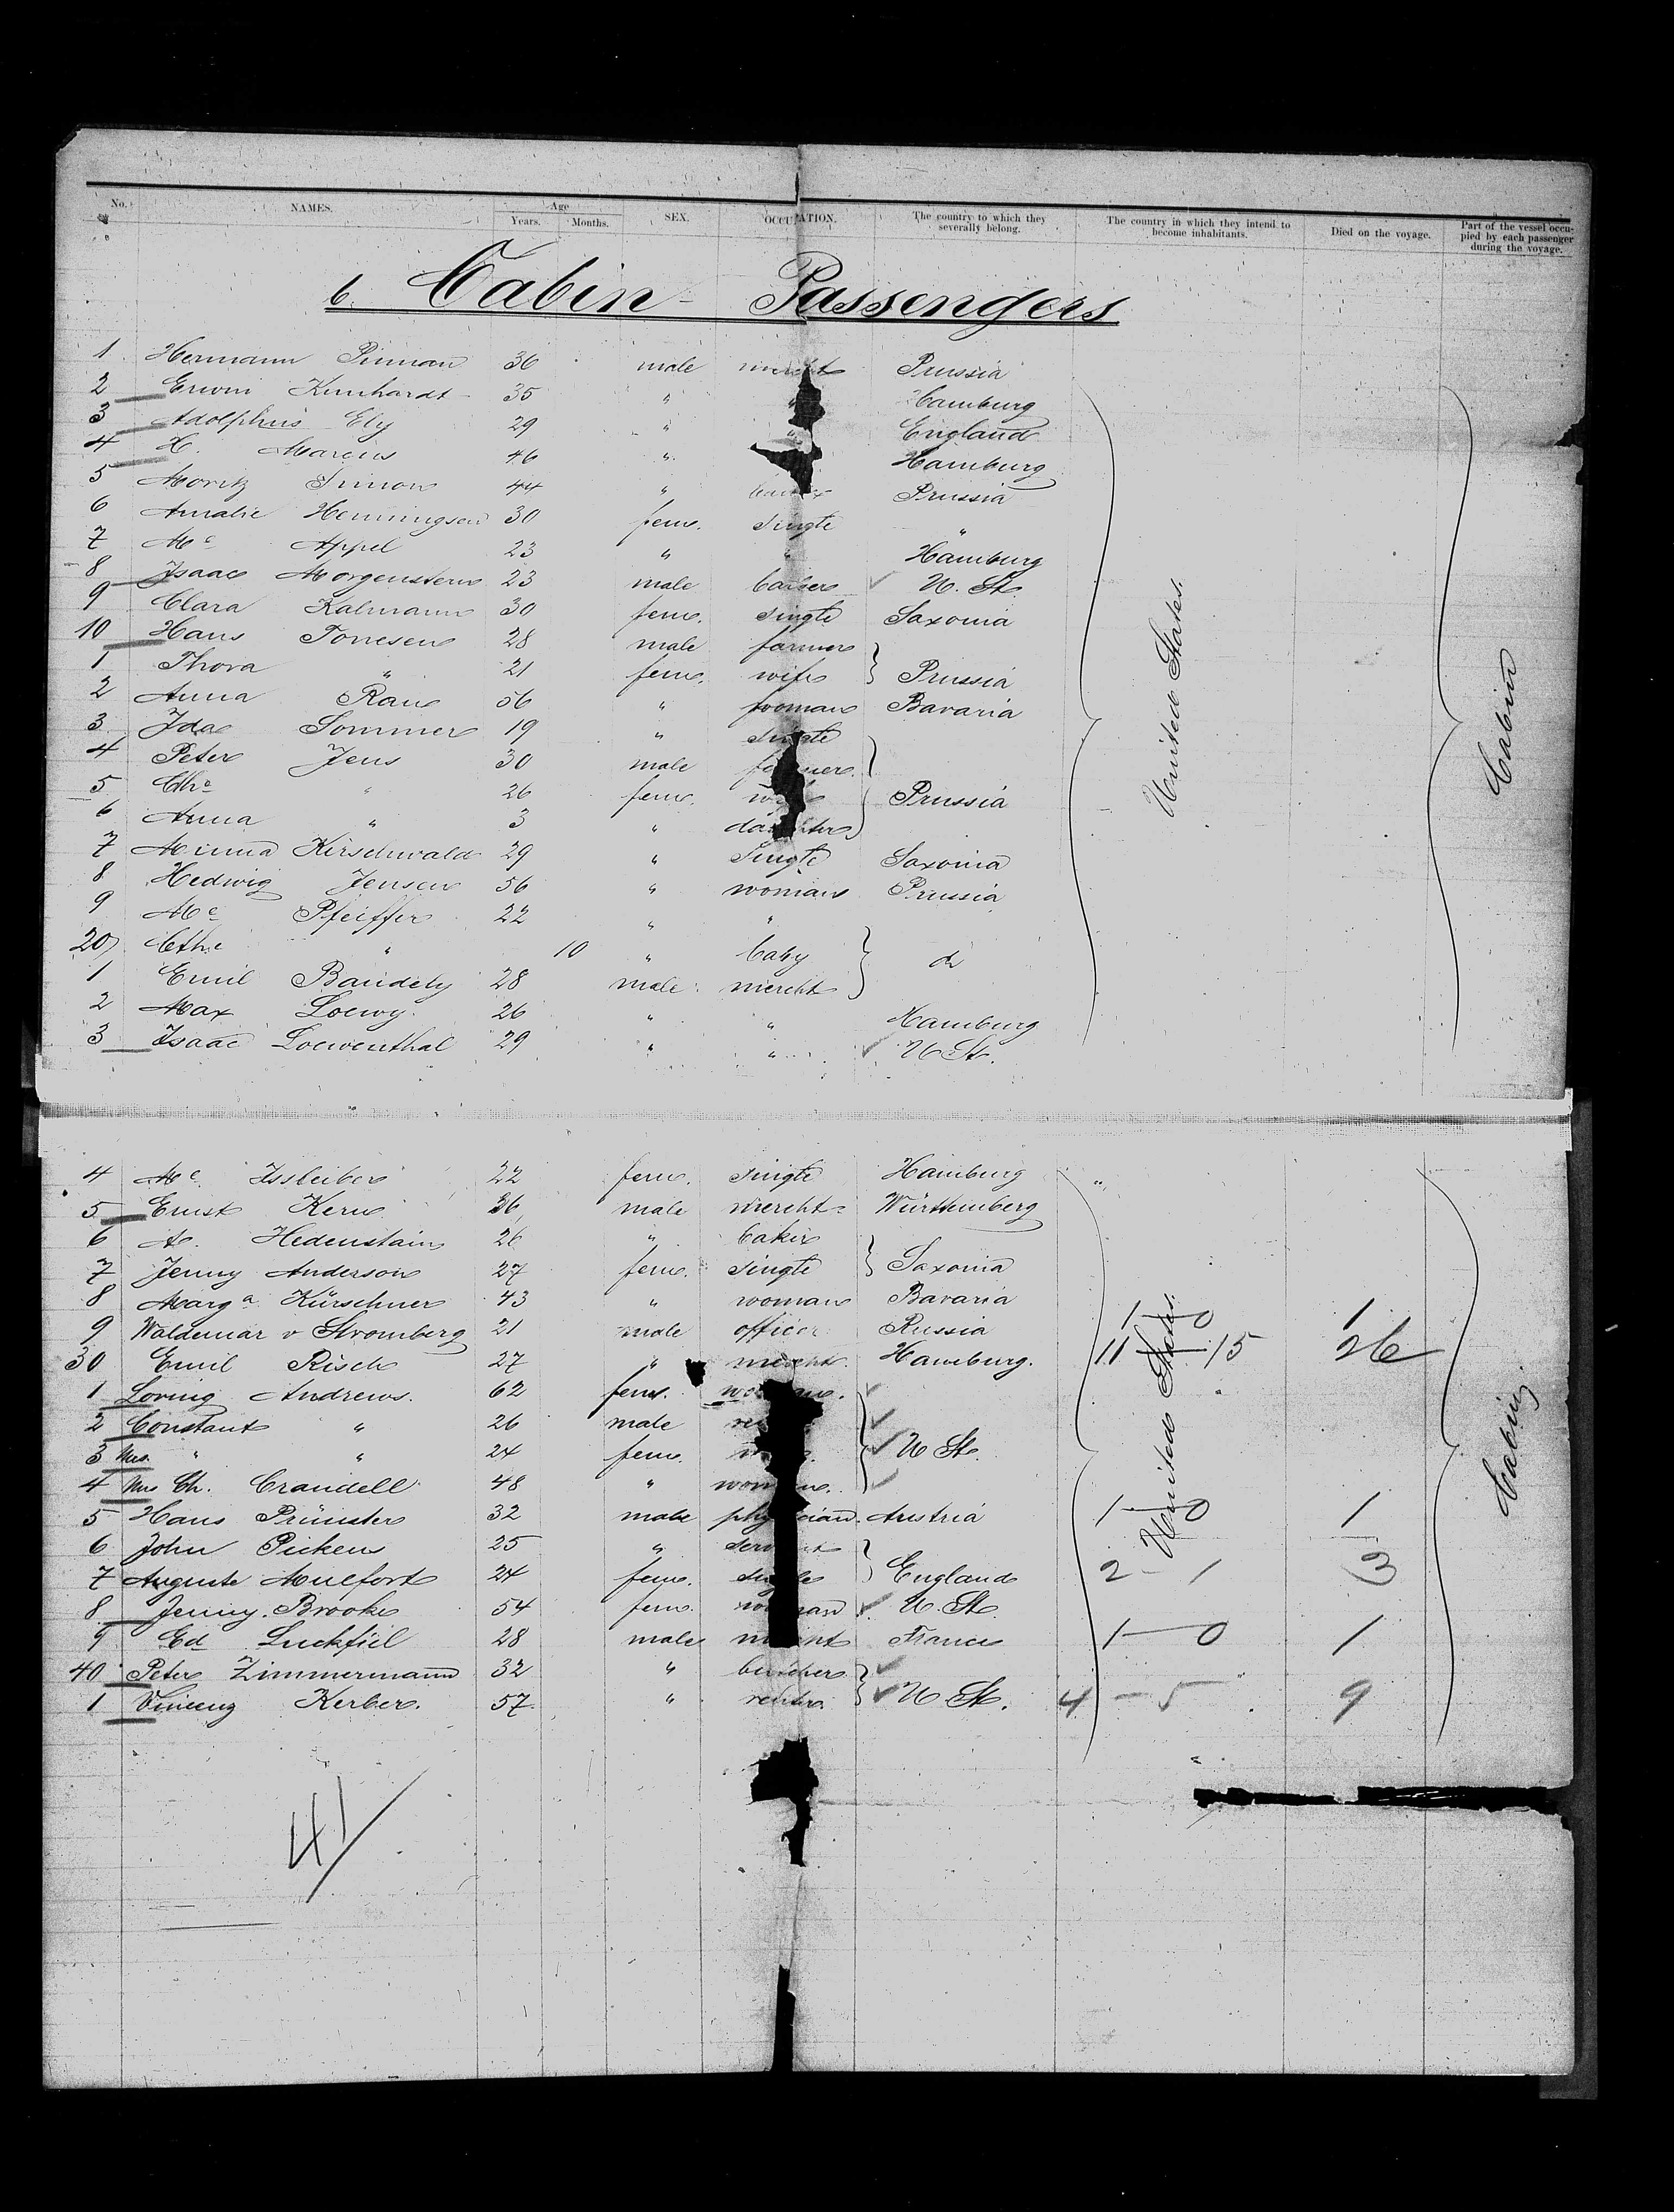 No. NAMES. Age Years. Months. SEX. OCCUPATION. The country to which they severally belong. The country in which they intend to become inhabitants. Died on the voyage. Part of the vessel occupied by each passenger during the voyage.
b. Cabin - Passengers
1 Hermann 36 male Prussia
2 Erwin Kunhardt 35 " " Hamburg
3 Adolphus Ely 29 " " England
4 H. Marcus 46 " Hamburg
5 Moritz Simon 44 " Prussia
6 Amalie Henningsen 30 fem. single "
7 Mc Appel 23 " " Hamburg
8 Isaac Morgenstern 23 male U. St.
9 Clara Kalmann 30 fem. single Saxonia
10 Hans Tonnesen 28 male farmer
1 Thora " 21 fem. wife Prussia
2 Anna Rau 56 " woman Bavaria
3 Ida Sommer 19 " single
4 Peter Jens 30 male farmer
5 Cthe " 26 fem. Prussia
6 Anna " 3 " daughter
7 Minna Kirschwald 29 " single Saxonia
8 Hedwig Jensen 56 " woman Prussia
9 Mc Pfeiffer 22 " "
20 Cthe " 10 " baby do
1 Emil Bandely 28 male mercht
2 Max Loewy 26 " " Hamburg
3 Isaac Loewenthal 29 " " U St.
United States.
Cabin
4 Mc Issleiber 22 fem. single Hamburg
5 Ernst Kern 36 male mercht Württemberg
6 A. Hedenstain 26 " baker
7 Jenny Anderson 27 fem. single Saxonia
8 Marga Kürschner 43 " woman Bavaria
9 Waldemar v Stromberg 21 male officer Russia 1 - 0 1
30 Emil Risch 27 " mercht. Hamburg. 11 - 15 26
1 Loring Andrews. 62 fem.
2 Constant " 26 male
3 Mrs. " " 24 fem. U St.
4 Mrs Ch. Crandell 48 " woman.
5 Hans Prünster 32 male physician. Austria 1 - 0 1
6 John Pickens 25 " servant
7 Auguste Mulfort 24 fem. single England 2 - 1 3
8 Jenny Brooke 54 fem. woman U. St.
9 Ed 28 male France 1 - 0 1
40 Peter Zimmermann 32 " butcher
1 Vincenz Kerber. 57 " U St. 4 - 5 9
United States.
Cabin
41